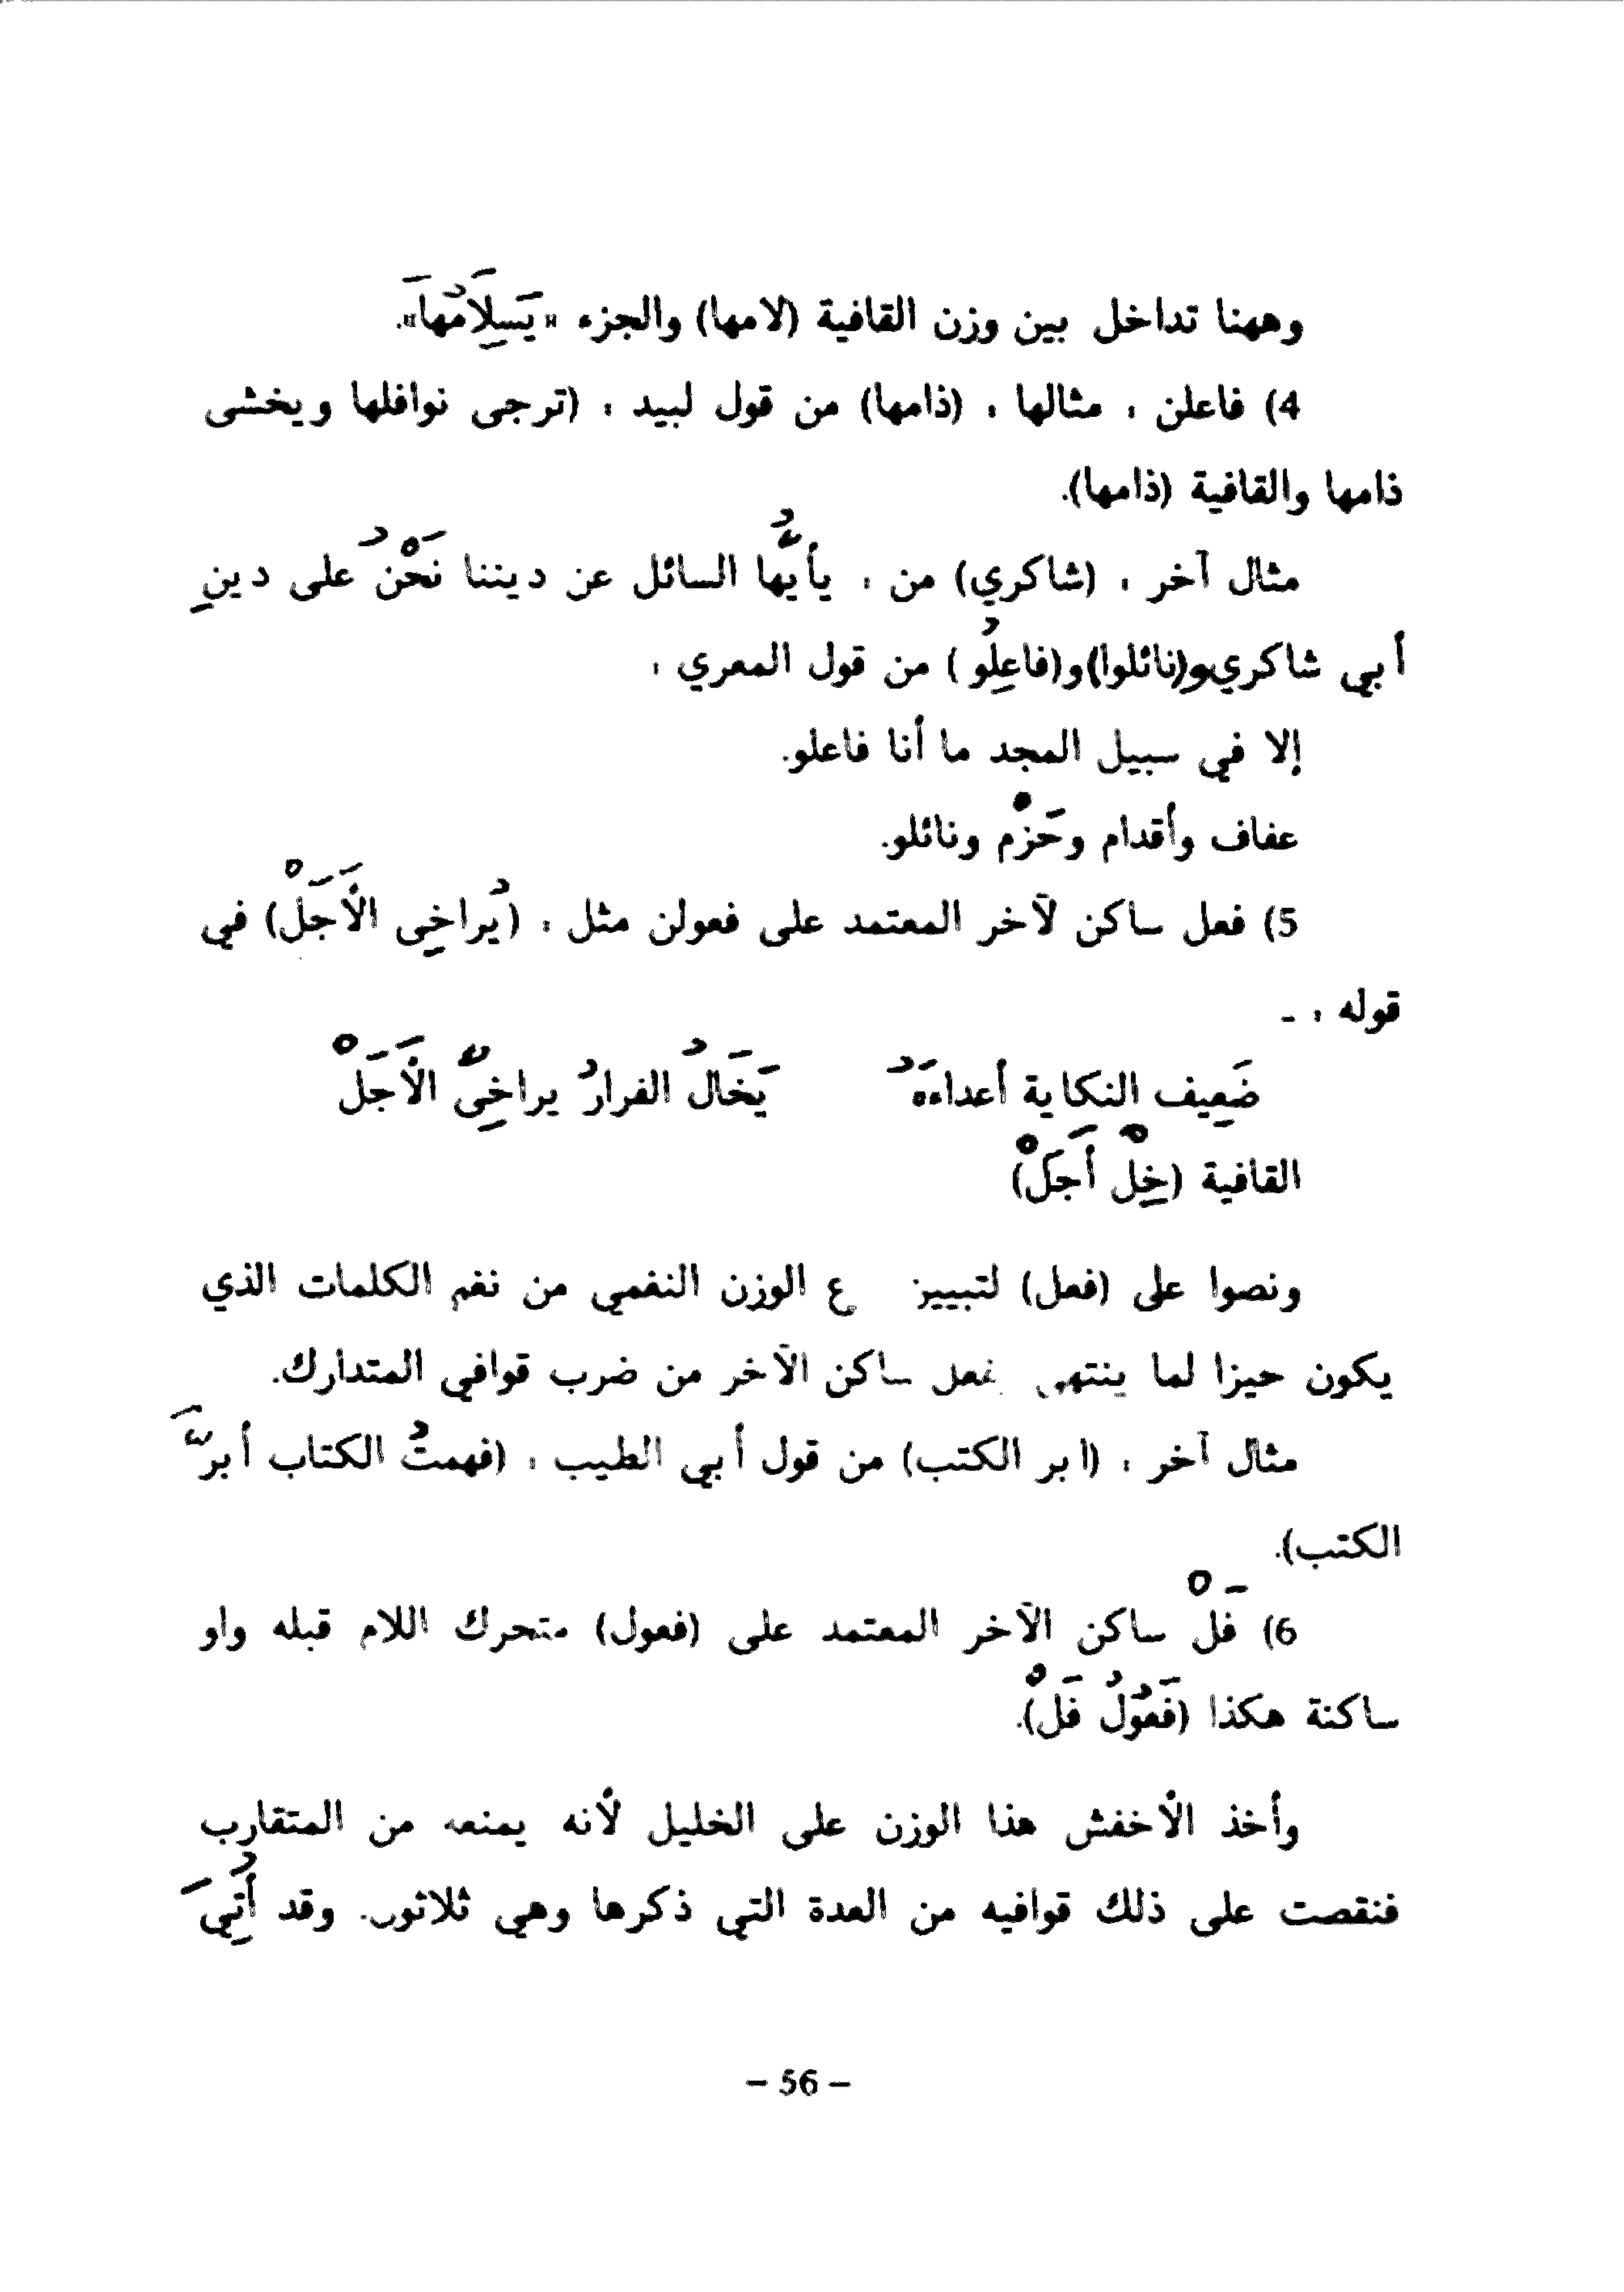 وههنا تداخل بين وزن القافية (لامها) والجزء «يَسِلَامُهَا».
4) فاعلن ، مثالها ، (ذامها) من قول لبيد ، (ترجى نوافلها ويخشى
ذامها والقافية (ذامها).
مثال آخر ، (شاكري) من ، يأيُّها السائل عن ديننا نَحْنُ على دينِ
أبي شاكري و(نائلوا) و(فاعِلُو) من قول المعري ،
إلا في سبيل المجد ما أنا فاعلو.
عفاف وأقدام وحَزْم ونائلو.
5) فعل ساكن لآخر المعتمد على فعولن مثل ، (يُراخِى الأَجَلْ) في
قوله ، ـ
ضَعِيف النكاية أعداءَهُ يَخَالُ الفرارُ يراخِىّ الأَجَلْ
القافية (خِلْ أَجَلْ)
ونصوا على (فعل) لتبييز ع الوزن النغمي من نغم الكلمات الذي
يكون حيزا لما ينتهي بفعل ساكن الآخر من ضرب قوافي المتدارك.
مثال آخر ، (ابر الكتب) من قول أبي الطيب ، (فهمتُ الكتاب أبرَّ
الكتب).
6) فَلْ ساكن الآخر المعتمد على (فعول) متحرك اللام قبله واو
ساكنة هكذا (فَعُولُ فَلْ).
وأخذ الأخفش هذا الوزن على الخليل لأنه يمنعه من المتقارب
فنقصت على ذلك قوافيه من العدة التي ذكرها وهي ثلاثون. وقد أُتِيَ
– 56 –